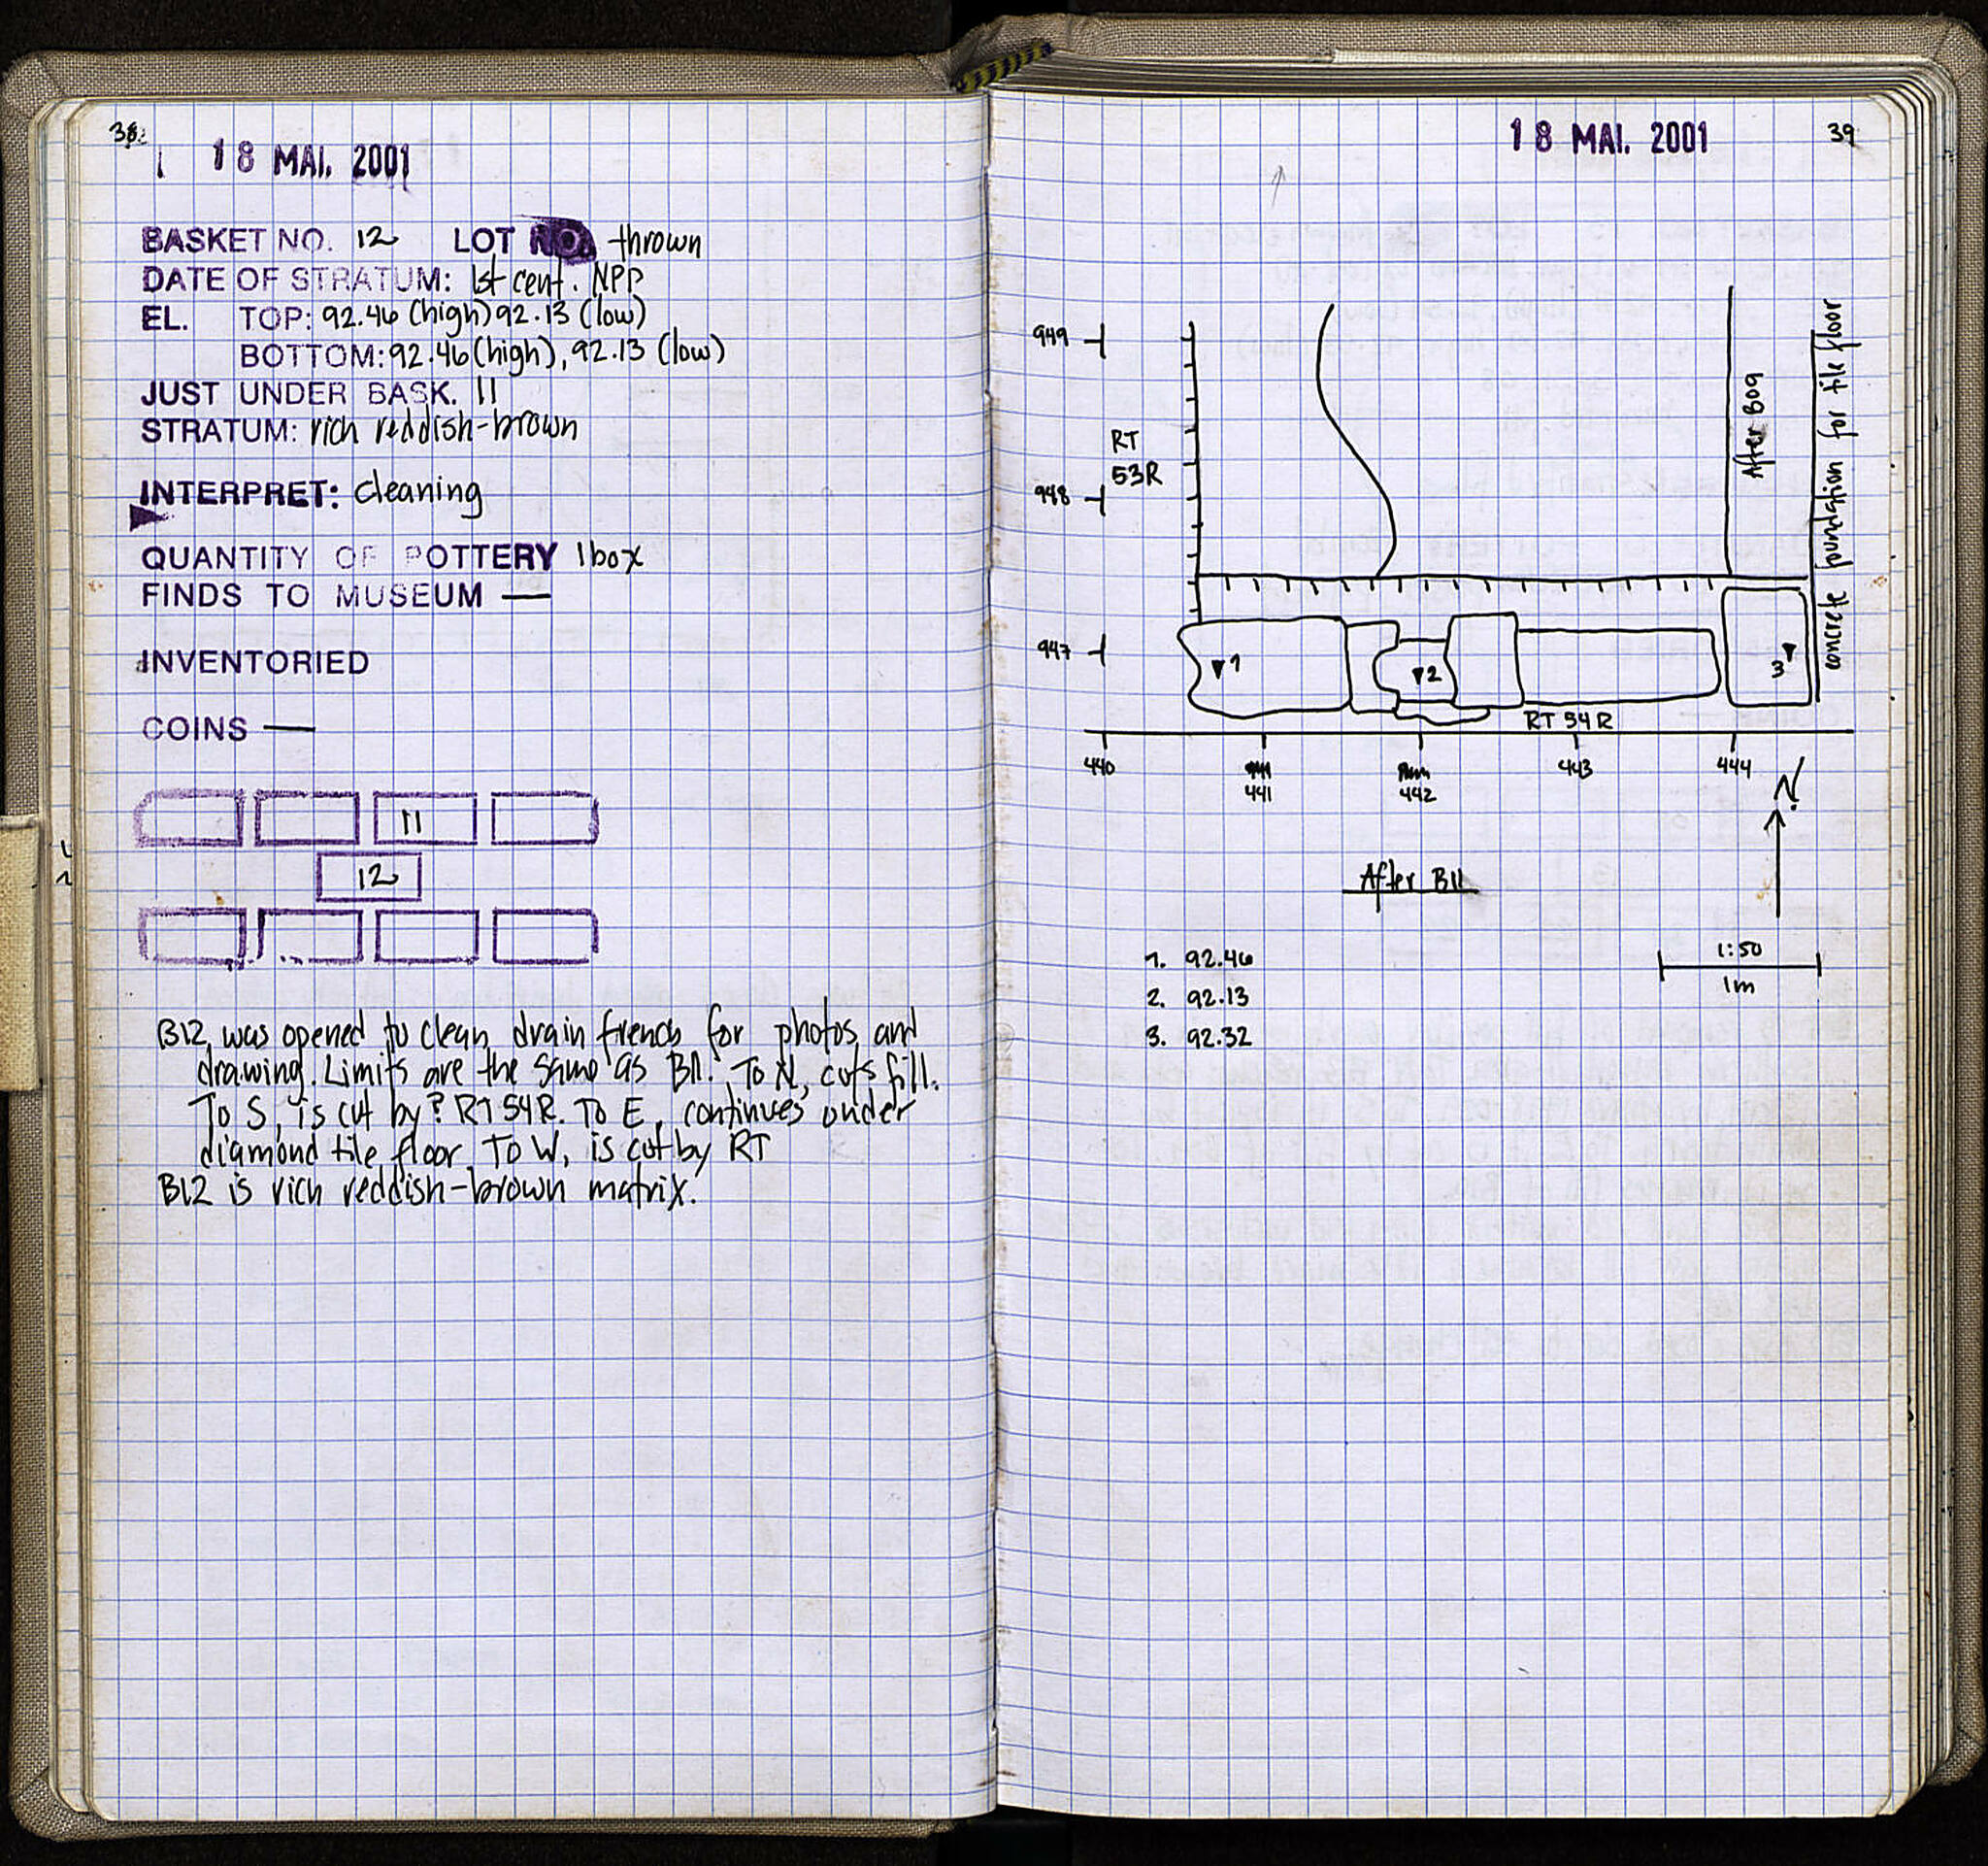 38
18 MAI. 2001
BASKET NO. 12 LOT NO. thrown
DATE OF STRATUM: 1st cent. NPP
EL. TOP: 92.46 (high) 92.13 (low)
BOTTOM: 92.46 (high), 92.13 (low)
JUST UNDER BASK. 11
STRATUM: rich reddish-brown
INTERPRET: cleaning
QUANTITY OF POTTERY 1 box
FINDS TO MUSEUM —
INVENTORIED
COINS —
11
12
B12 was opened to clean drain trench for photos and
drawing. Limits are the same as B11. To N, cuts fill.
To S, is cut by? RT 54R. To E, continues under
diamond tile floor To W, is cut by RT
B12 is rich reddish-brown matrix.
18 MAI. 2001
39
949
948
947
RT
53R
After B09
concrete foundation for tile floor
1
2
3
RT 54 R
440
441
442
443
444
N
After B11
1:50
1m
1. 92.46
2. 92.13
3. 92.32